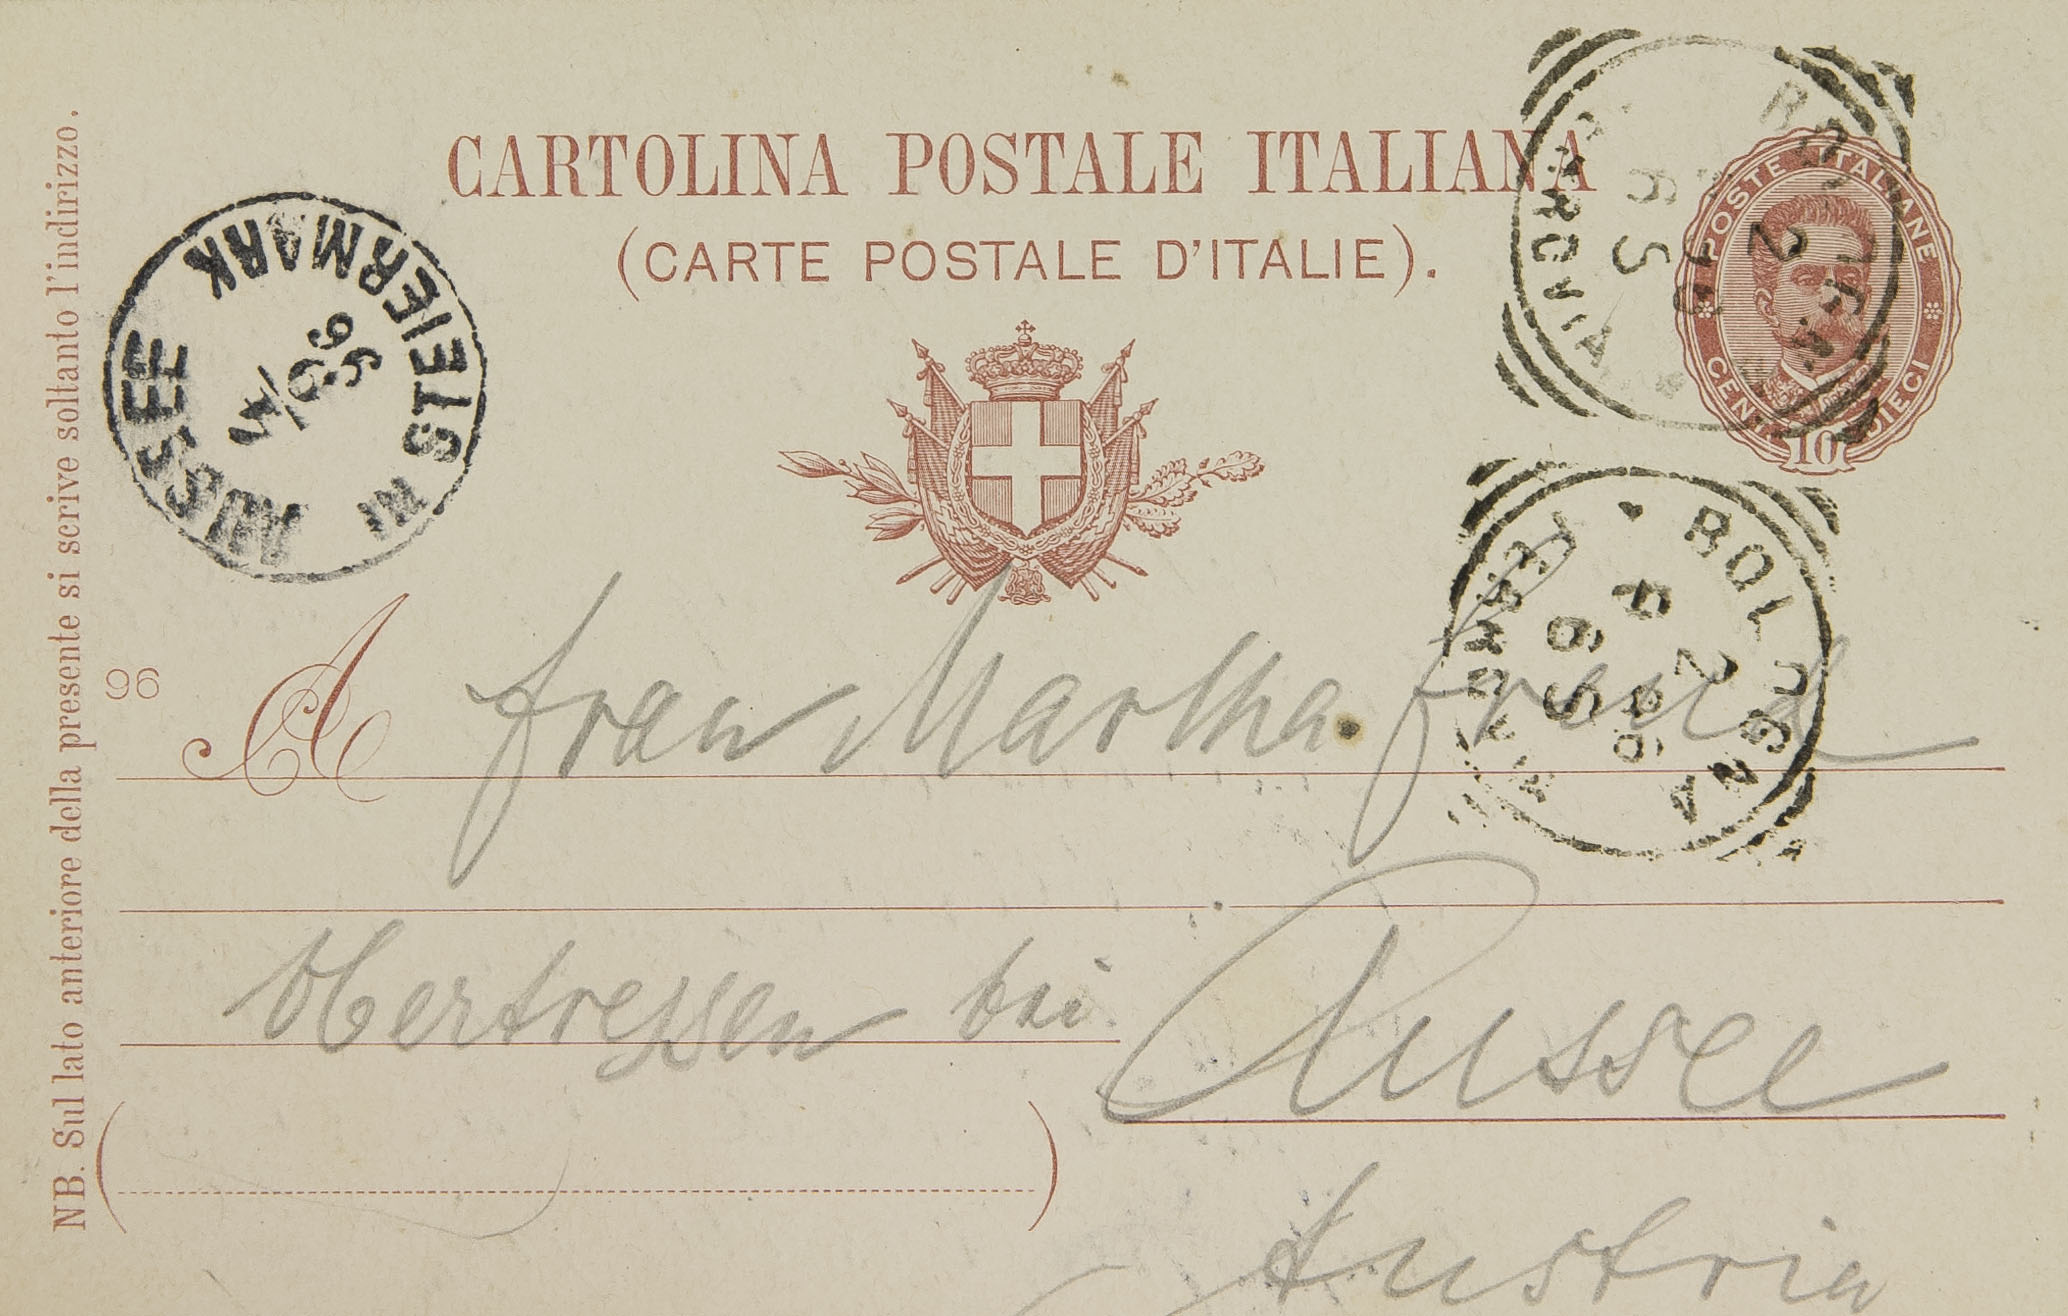 CARTOLINA POSTALE ITALIANA
(CARTE POSTALE D'ITALIE).
POSTE ITALIANE
CENT. 10 DIECI
BOLOGNA
FERROVIA
2
9 S
96
BOLOGNA
2
9 S
96
AUSSEE
IN STEIERMARK
96
NB. Sul lato anteriore della presente si scrive soltanto l'indirizzo.
96
A Frau Martha Freud
Obertressen bei
Aussee
Austria